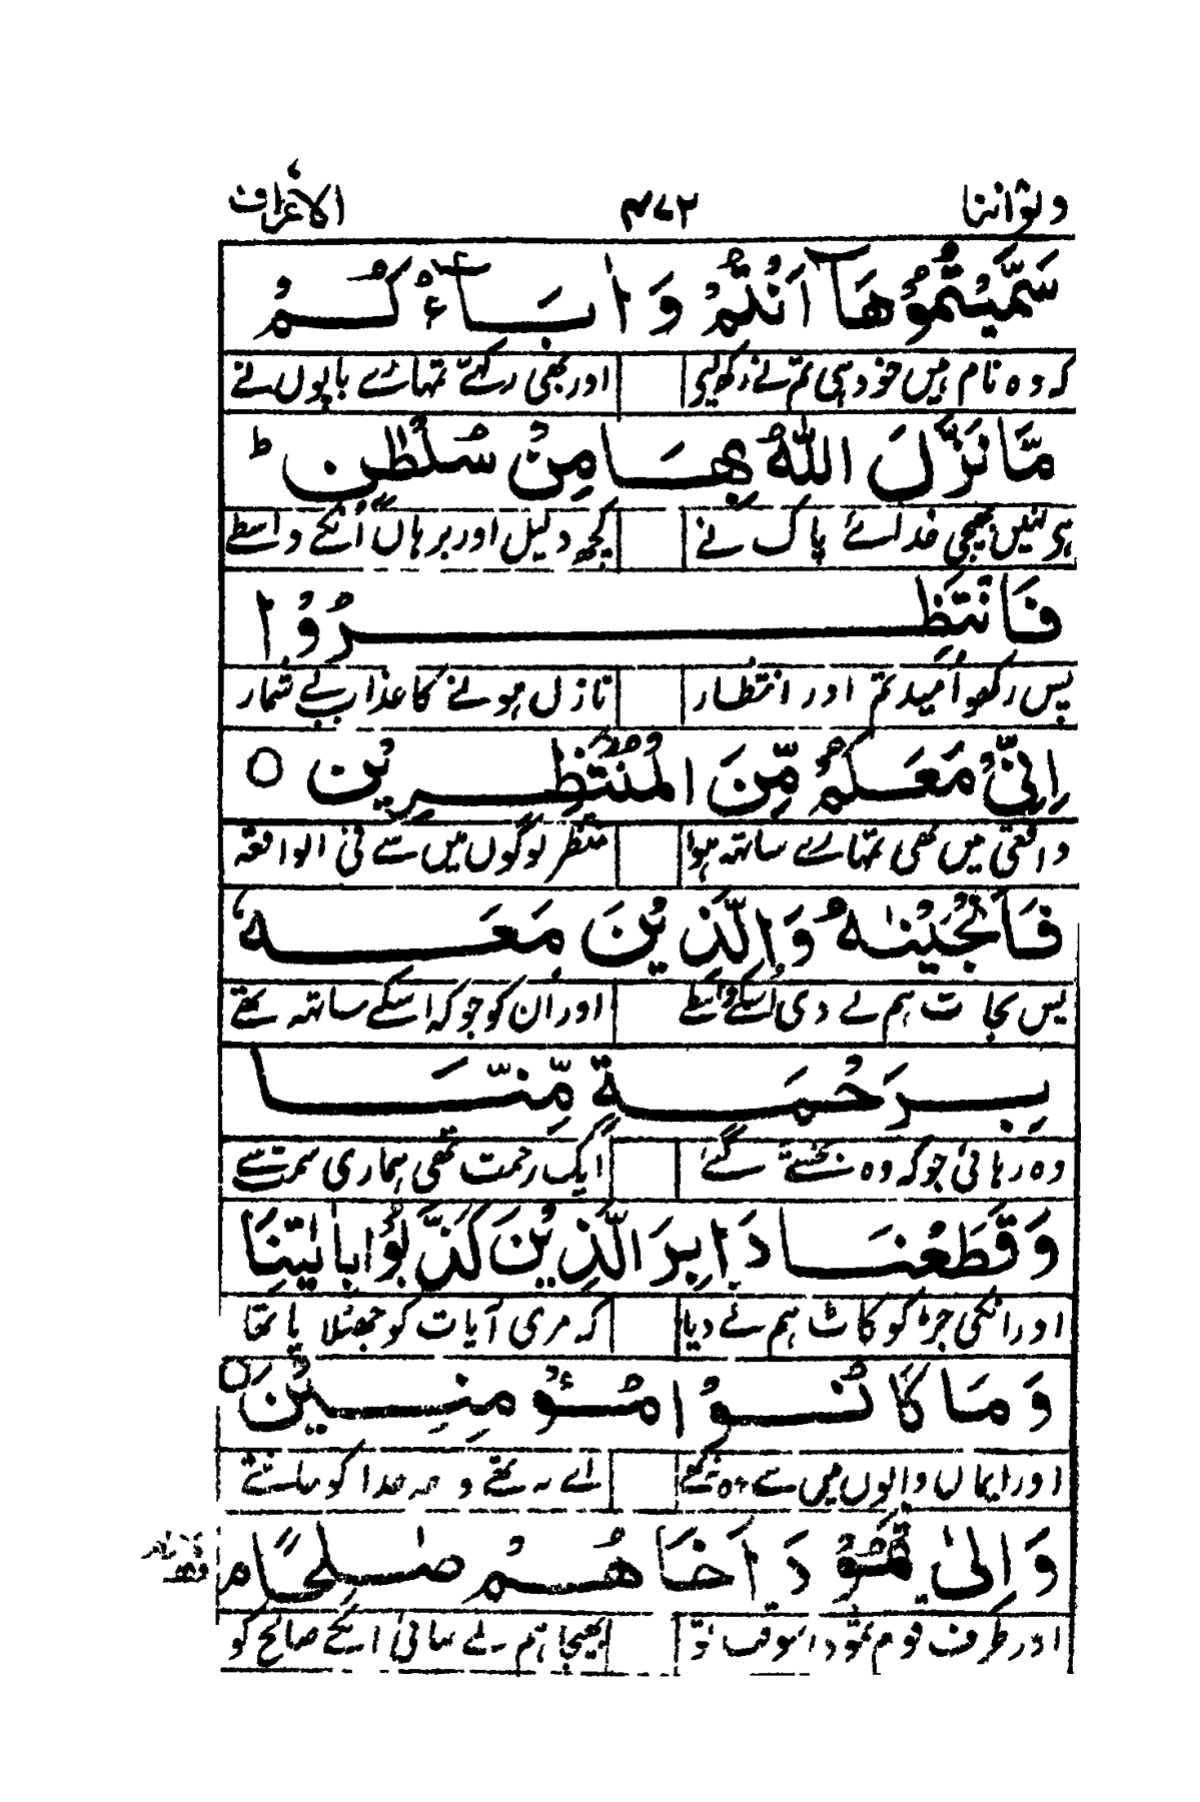 ولواننا ۴۷۲ الاعراف
سَمَّيْتُمُوْهَآ اَنْتُمْ وَاٰبَآءُكُمْ
کہ وہ نام ہیں خود ہی تم نے رکھ لیے اور بھی رکھے تمہارے باپوں نے
مَّا نَزَّلَ اللّٰهُ بِهَا مِنْ سُلْطٰنٍ ط
نہیں بھیجی خدائے پاک نے کچھ دلیل اور برہاں اُنکے واسطے
فَانْتَظِرُوْا
پس رکھو اُمید تم اور انتظار نازل ہونے کا عذاب بے شمار
اِنِّيْ مَعَكُمْ مِّنَ الْمُنْتَظِرِيْنَ ○
واقعی میں بھی تمہارے ساتھ ہوا منتظر لوگوں میں سے فی الواقعہ
فَاَنْجَيْنٰهُ وَالَّذِيْنَ مَعَهٗ
پس نجات ہم نے دی اُسکے واسطے اور اُن کو جو کہ اسکے ساتھ تھے
بِرَحْمَةٍ مِّنَّا
وہ رہائی جو کہ وہ بخشے گئے ایک رحمت تھی ہماری سمت سے
وَقَطَعْنَا دَابِرَ الَّذِيْنَ كَذَّبُوْا بِاٰيٰتِنَا
اور انکی جڑ کو کاٹ ہم نے دیا کہ مری آیات کو جھٹلایا تھا
وَمَا كَانُوْا مُؤْمِنِيْنَ ○
اور ایماں والوں میں سے وہ نہ تھے نہ تھے وہ خدا کو مانتے
وَاِلٰى ثَمُوْدَ اَخَاهُمْ صٰلِحًا م
اور طرف قوم ثمود اسوقت تو بھیجا ہم نے بھائی انکے صالح کو